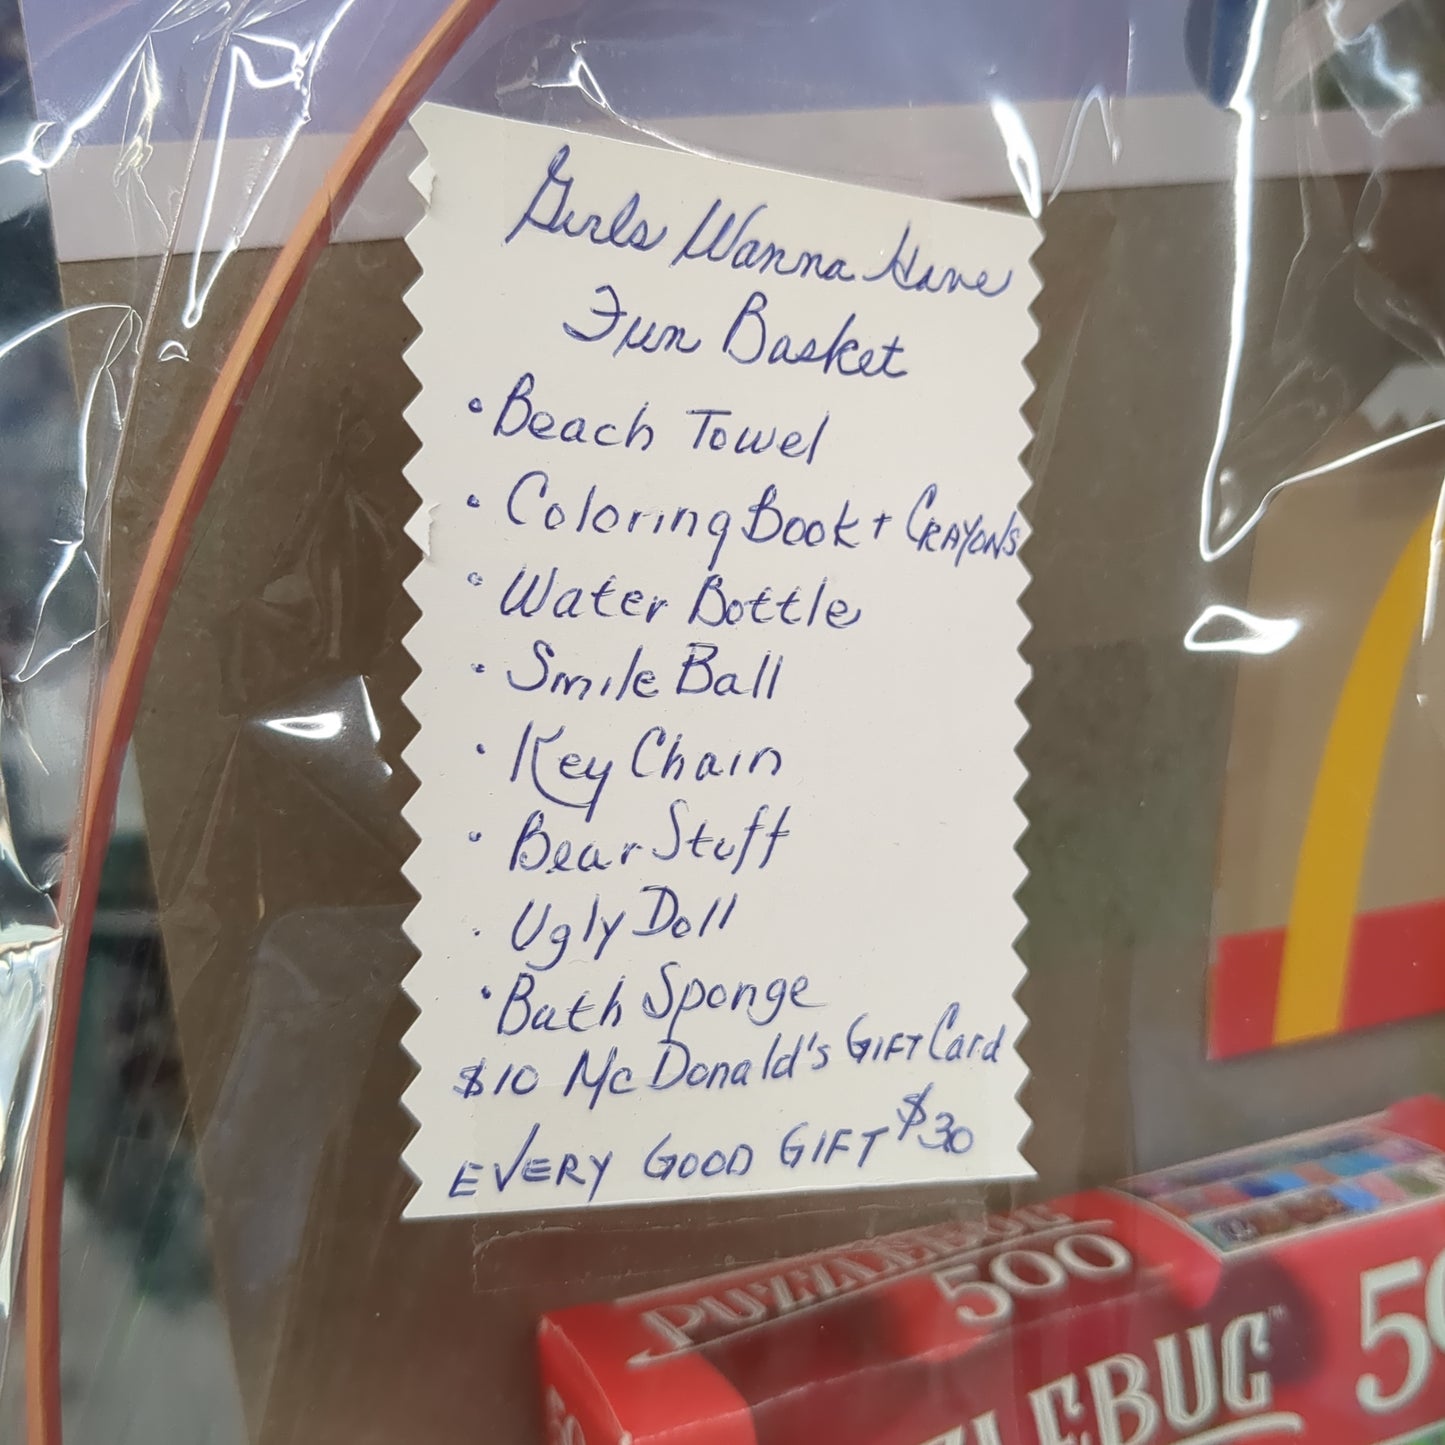 Girls Wanna Have
Fun Basket
• Beach Towel
• Coloring Book + CRAYONS
• Water Bottle
• Smile Ball
• Key Chain
• Bear Stuff
• Ugly Doll
• Bath Sponge
$10 McDonald's GIFT Card
EVERY GOOD GIFT $30
PUZZLEBUG
500
ZLEBUG
50